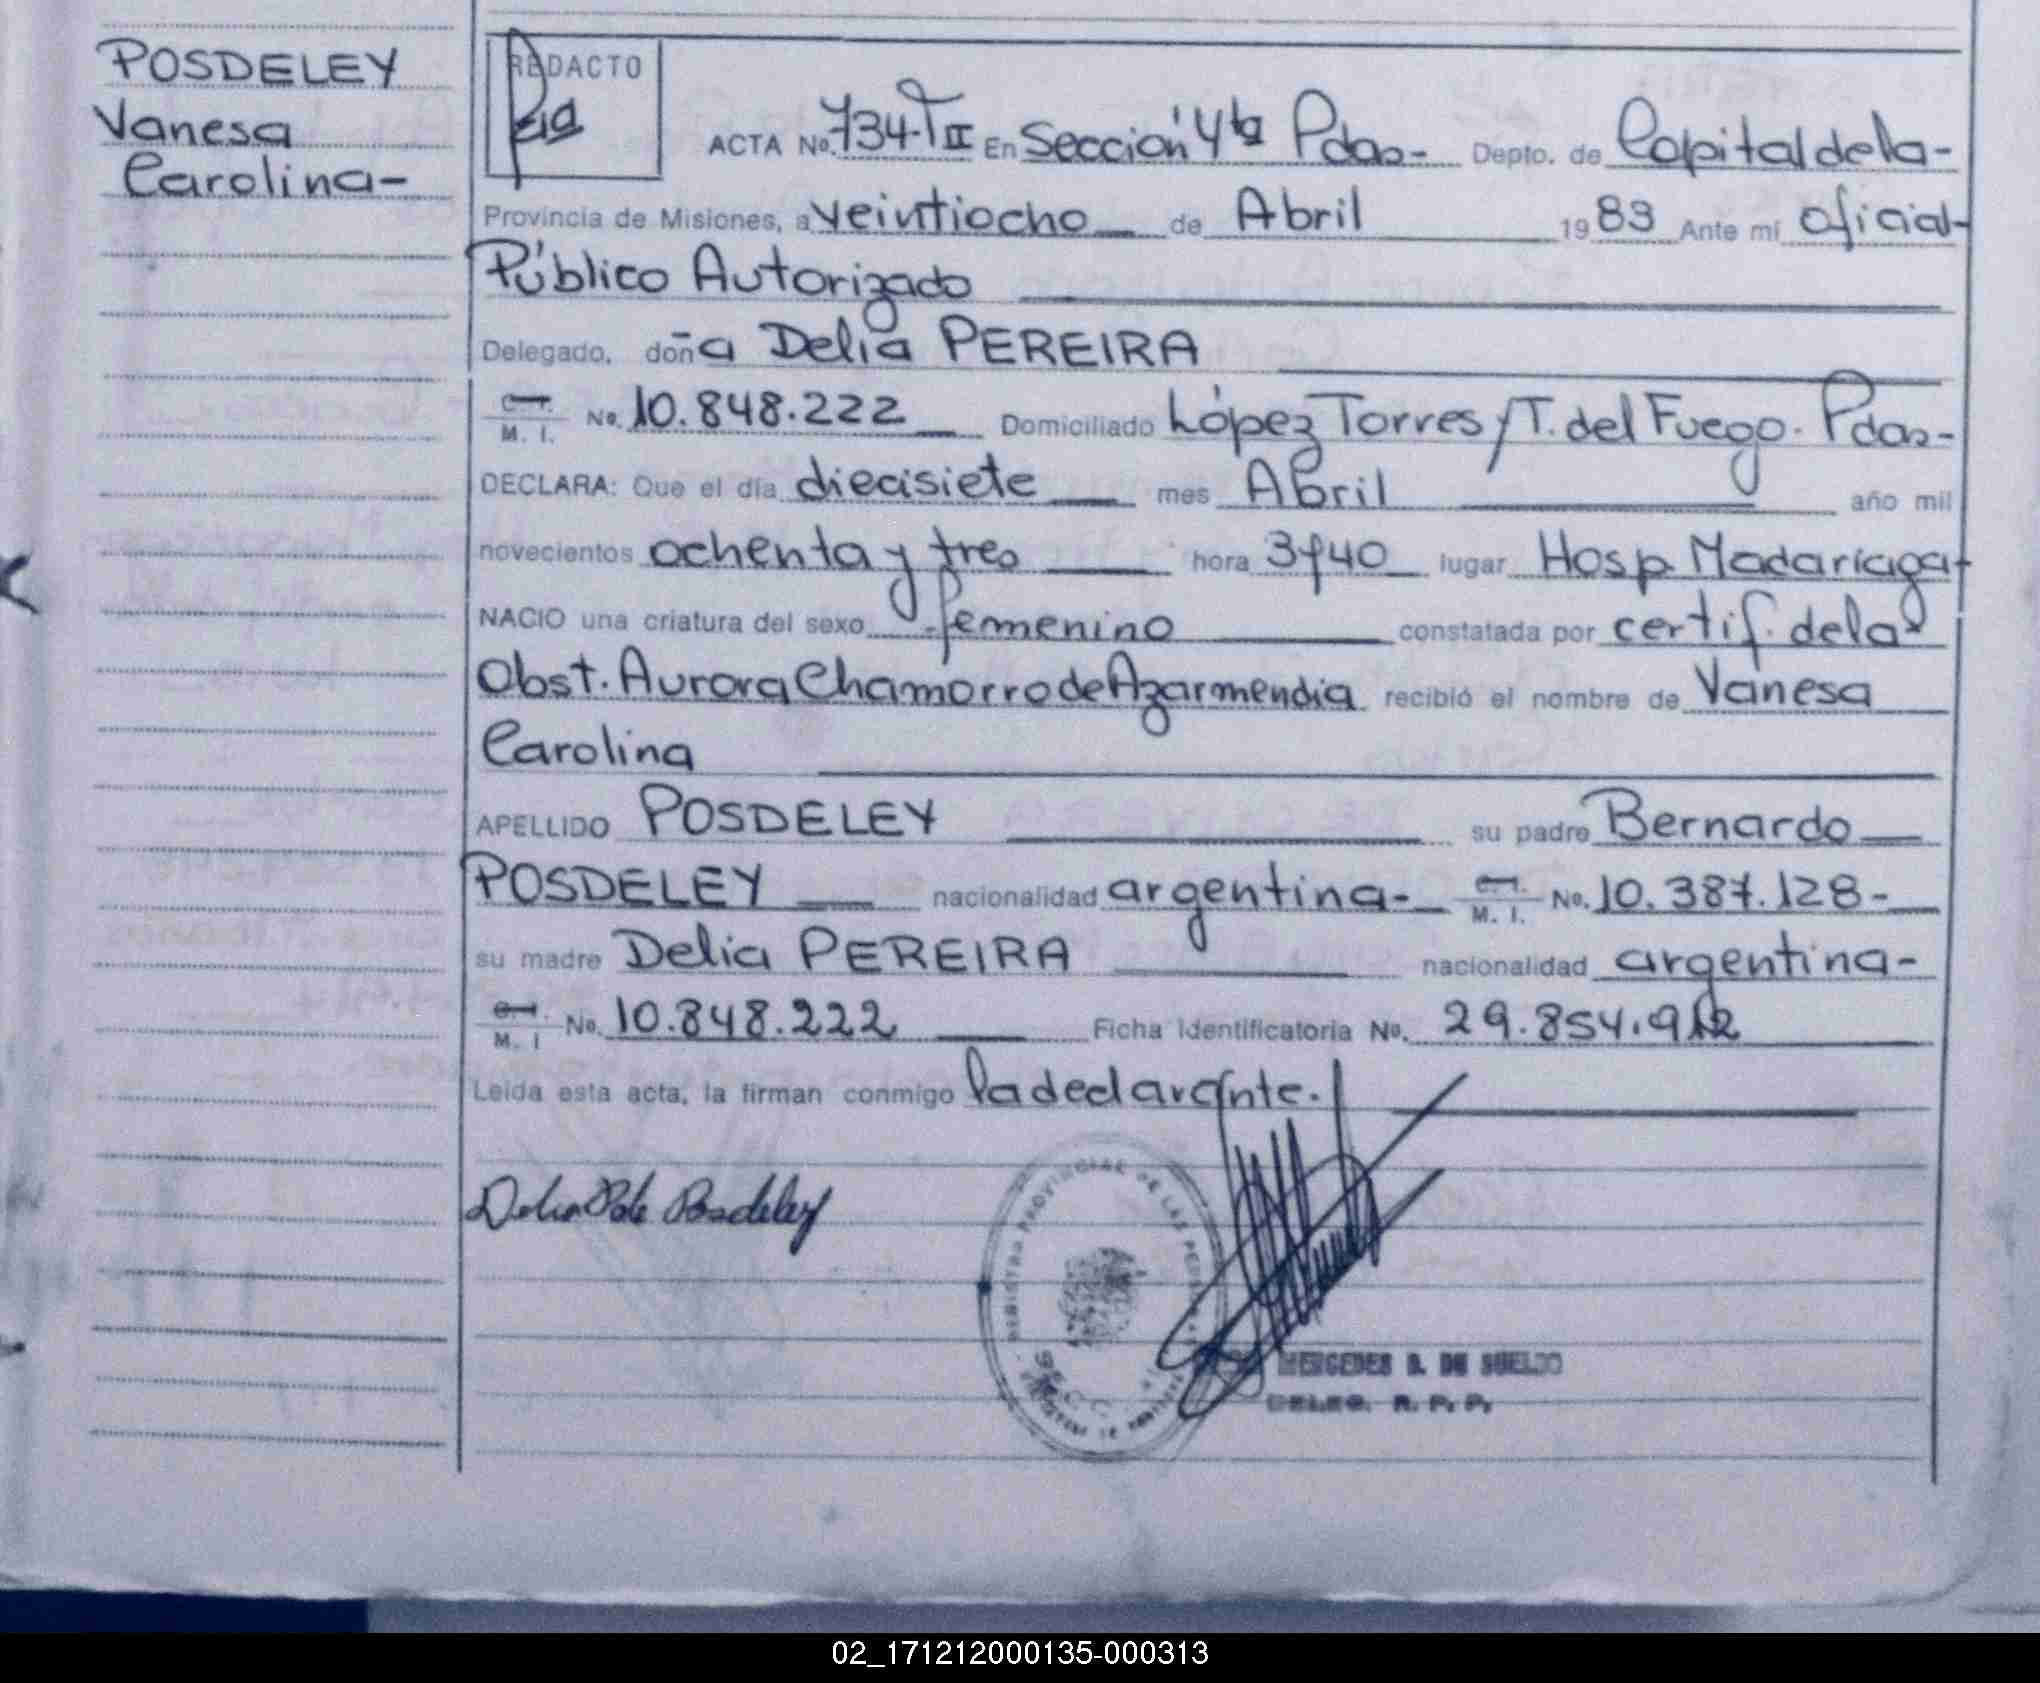 POSDELEY
Vanesa
Carolina-
REDACTO
ACTA No. 734-T II En Sección 4ta Pdas- Depto. de Capital de la-
Provincia de Misiones, a veintiocho de Abril 1983 Ante mí oficial-
Público Autorizado
Delegado, doña Delia PEREIRA
M. I. No. 10.848.222 Domiciliado López Torres y T. del Fuego. Pdas-
DECLARA: Que el día diecisiete mes Abril año mil
novecientos ochenta y tres hora 3y40 lugar Hosp. Madariaga-
NACIO una criatura del sexo femenino constatada por certif. de la
Obst. Aurora Chamorro de Azarmendia recibió el nombre de Vanesa
Carolina
APELLIDO POSDELEY su padre Bernardo
POSDELEY nacionalidad argentina- M. I. No. 10.387.128-
su madre Delia PEREIRA nacionalidad argentina-
M. I No. 10.848.222 Ficha Identificatoria No. 29.854.912
Leída esta acta, la firman conmigo la declarante.
Delia P de Posdeley
REGISTRO PROVINCIAL DE LAS PERSONAS
MERCEDES B. DE SUELDO
DELEG. R. P. P.
02_171212000135-000313